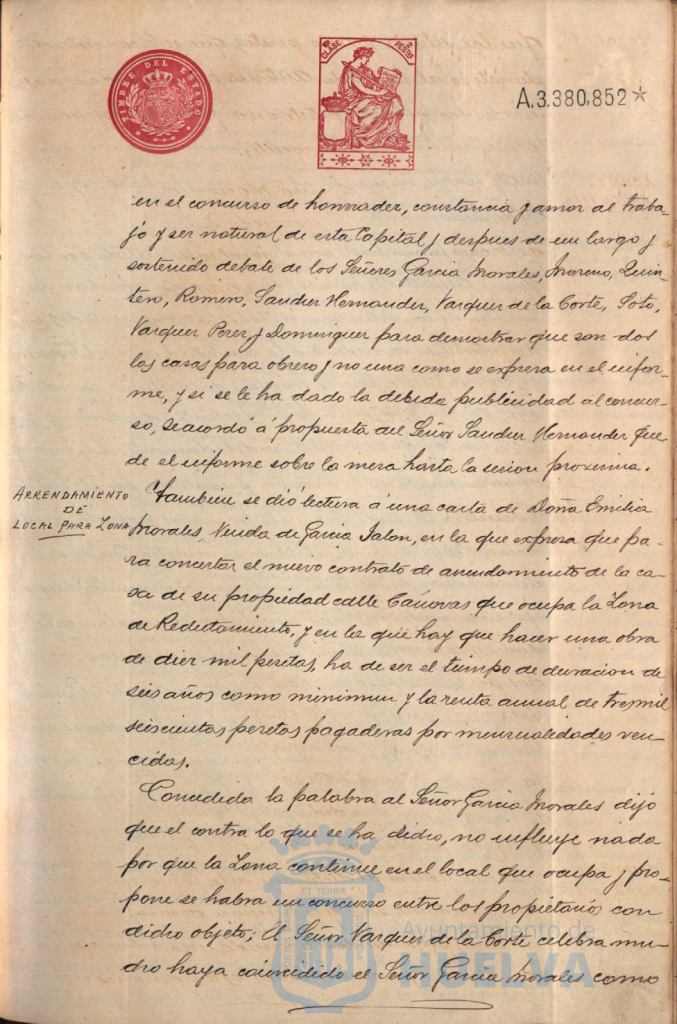 TIMBRE DEL ESTADO
1ª CLASE 2 PESTAS
A.3.380,852
en el concurso de honradez, constancia y amor al traba-
jo y ser natural de esta Capital y despues de un largo y
sostenido debate de los Señores Garcia Morales, Moreno, Quin-
tero, Romero, Sanchez Hernandez, Vazquez de la Corte, Soto,
Vazquez Perez, y Dominguez para demostrar que son dos
las casas para obrero y no una como se expresa en el infor-
me, y si se le ha dado la debida publicidad al concur-
so, se acordó á propuesta del Señor Sanchez Hernandez que-
de el informe sobre la mesa hasta la sesion proxima.
ARRENDAMIENTO
DE
LOCAL PARA ZONA
Tambien se dió lectura á una carta de Doña Emilia
Morales, Viuda de Garcia Jalon, en la que expresa que pa-
ra concertar el nuevo contrato de arrendamiento de la ca-
sa de su propiedad calle Cánovas que ocupa la Zona
de Reclutamiento, y en la que hay que hacer una obra
de diez mil pesetas, ha de ser el tiempo de duracion de
seis años como minimun y la renta anual de tres mil
seiscientas pesetas pagaderas por mensualidades ven-
cidas.
Concedida la palabra al Señor Garcia Morales dijo
que el contra lo que se ha dicho, no influye nada
por que la Zona continue en el local que ocupa y pro-
pone se habra un concurso entre los propietarios con
dicho objeto; El Señor Vazquez de la Corte celebra mu-
cho haya coincidido el Señor Garcia Morales como
Ayuntamiento de
HUELVA